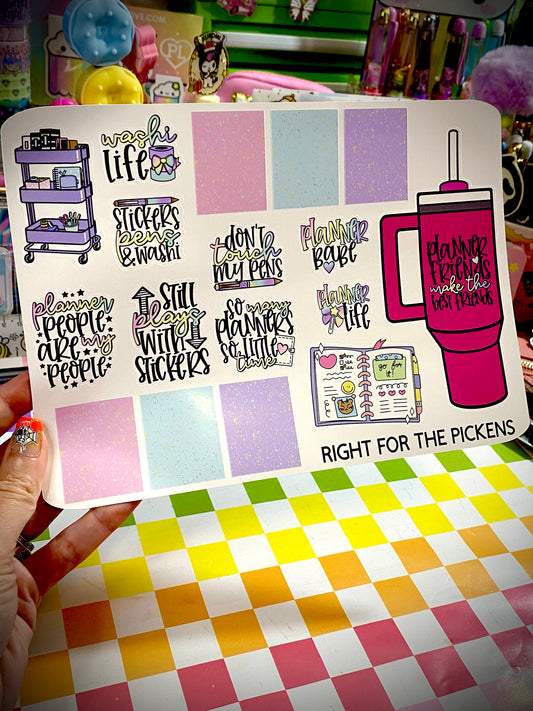 washi
LiFE
STiCKERS
pens
& WASHi
DON'T
touch
MY PENS
PLANNER
BABE
planner
PEOPLE
ARE my
PEOPLE
STiLL
plays
WiTH
STiCKERS
SO many
PLANNERS
SO LiTTLE
time
PLANNER
LiFE
go for
it!
PLANNER
FRiENDS
make the
BEST FRiENDS
RIGHT FOR THE PICKENS